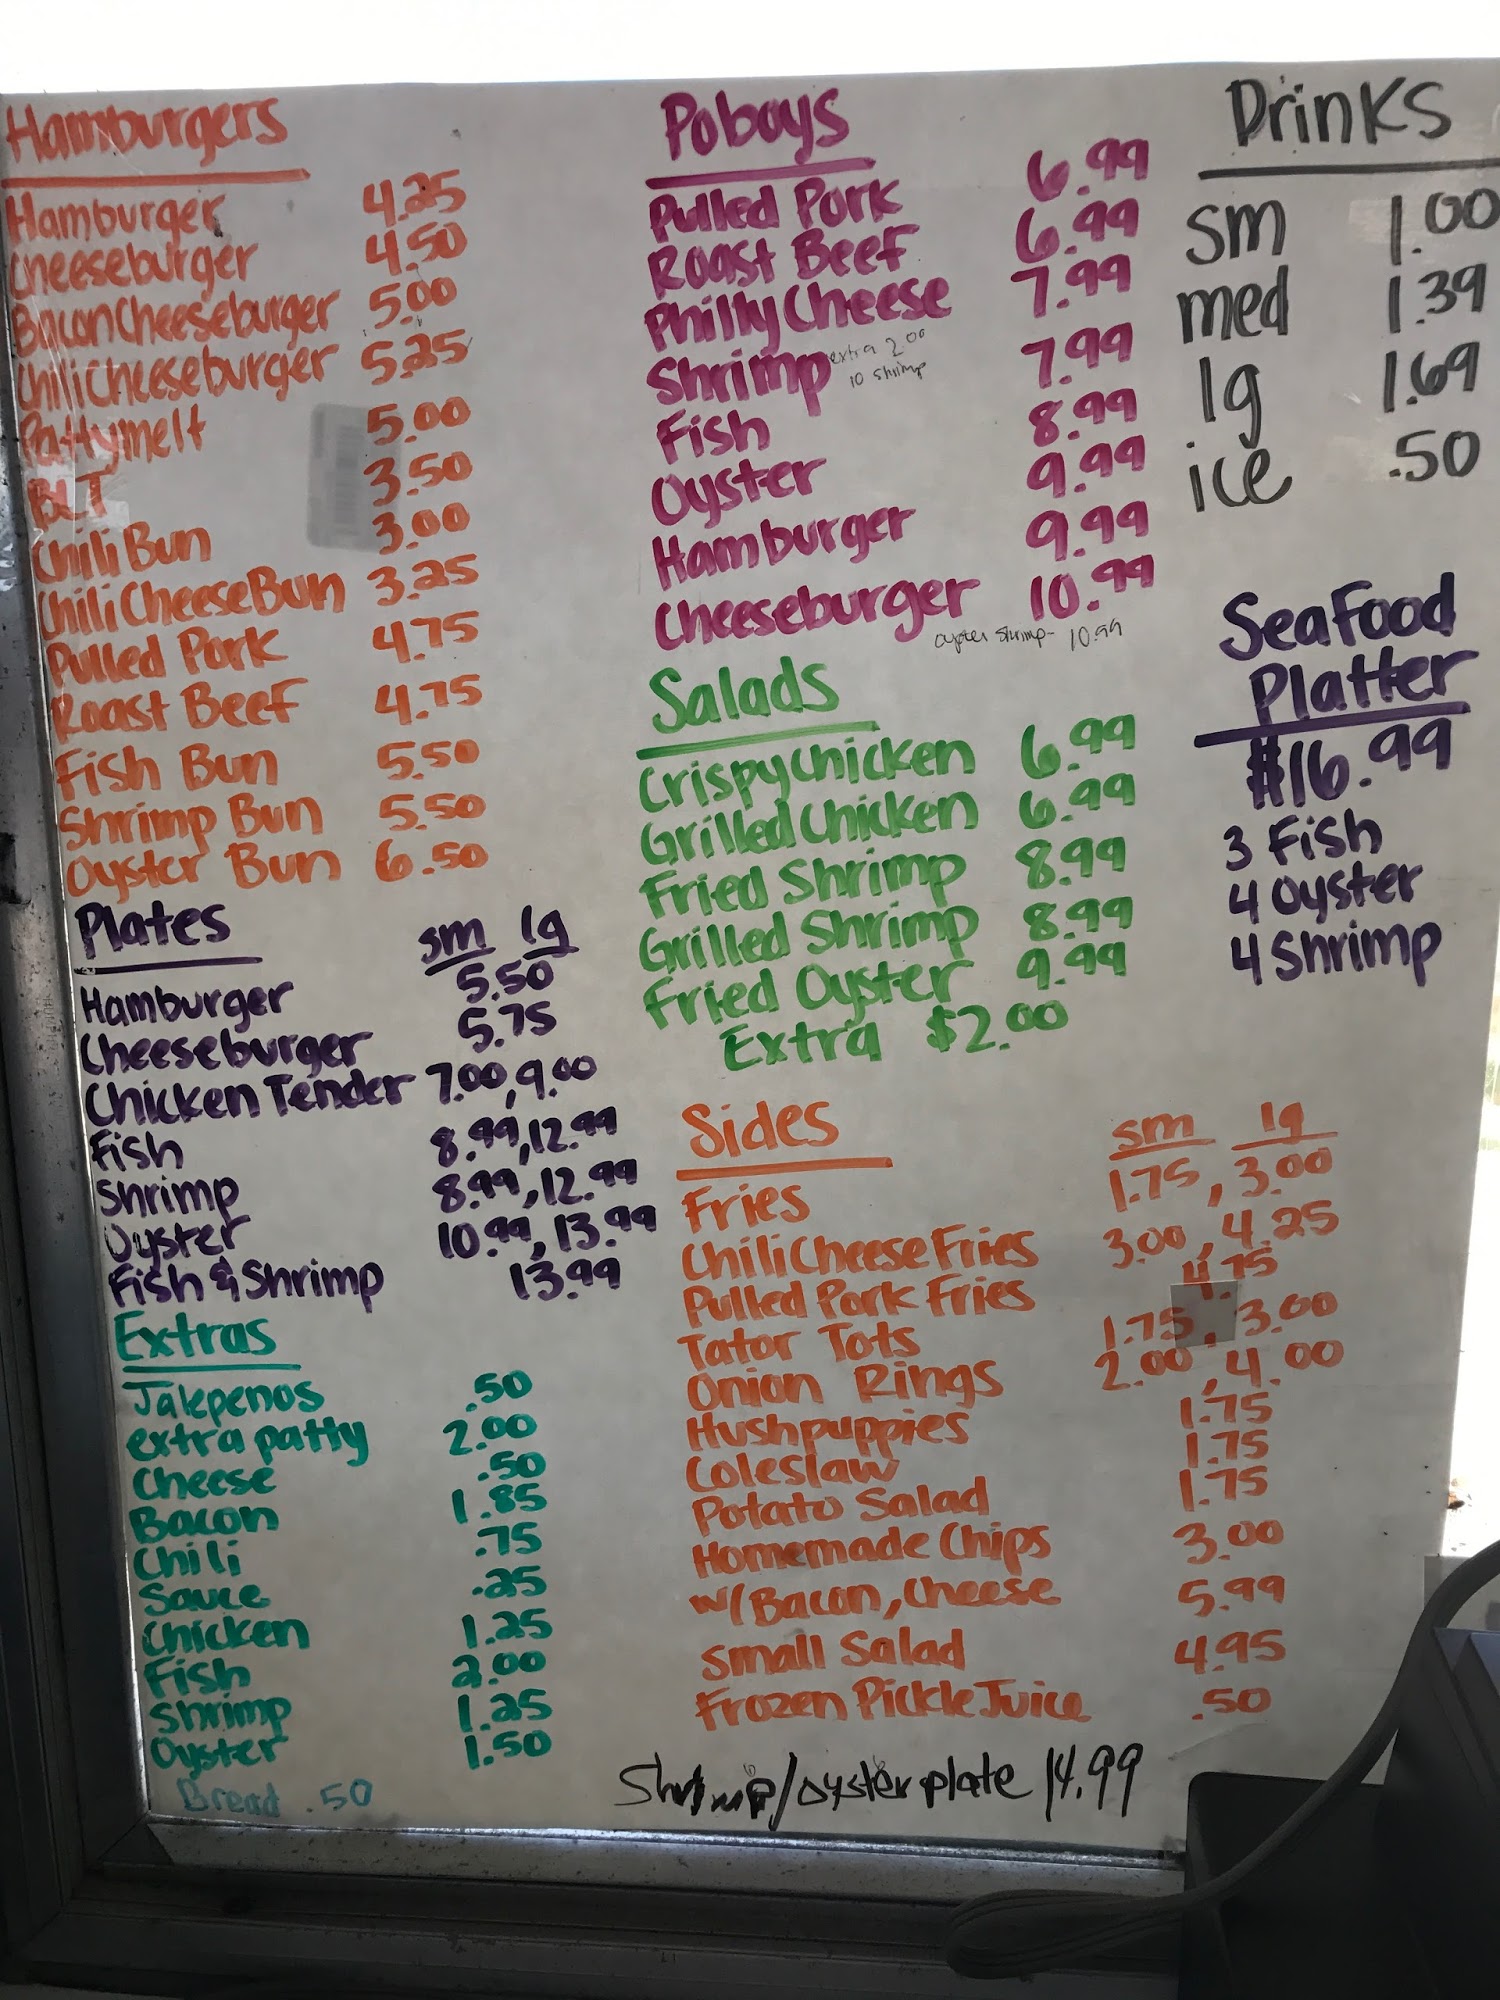 Hamburgers
Hamburger 4.25
Cheeseburger 4.50
BaconCheeseburger 5.00
ChiliCheeseburger 5.25
Pattymelt 5.00
BLT 3.50
Chili Bun 3.00
Chili Cheese Bun 3.25
Pulled Pork 4.75
Roast Beef 4.75
Fish Bun 5.50
Shrimp Bun 5.50
Oyster Bun 6.50
Plates sm lg
Hamburger 5.50
Cheeseburger 5.75
Chicken Tender 7.00, 9.00
Fish 8.99, 12.99
Shrimp 8.99, 12.99
Oyster 10.99, 13.99
Fish & Shrimp 13.99
Extras
Jalepenos .50
extra patty 2.00
Cheese .50
Bacon 1.85
Chili .75
Sauce .25
Chicken 1.25
Fish 2.00
Shrimp 1.25
Oyster 1.50
Bread .50
Poboys
Pulled Pork 6.99
Roast Beef 6.99
Philly Cheese 7.99
Shrimp extra 2.00 7.99
10 shrimp
Fish 8.99
Oyster 9.99
Hamburger 9.99
Cheeseburger 10.99
oyster shrimp- 10.99
Salads
Crispy Chicken 6.99
Grilled Chicken 6.99
Fried Shrimp 8.99
Grilled Shrimp 8.99
Fried Oyster 9.99
Extra $2.00
Sides sm lg
Fries 1.75, 3.00
Chili Cheese Fries 3.00, 4.25
Pulled Pork Fries 4.75
Tator Tots 1.75, 3.00
Onion Rings 2.00, 4.00
Hushpuppies 1.75
Coleslaw 1.75
Potato Salad 1.75
Homemade Chips 3.00
w/ Bacon, Cheese 5.99
Small Salad 4.95
Frozen Pickle Juice .50
Shrimp/oyster plate 14.99
Drinks
sm 1.00
med 1.39
lg 1.69
ice .50
Seafood
Platter
$16.99
3 Fish
4 Oyster
4 Shrimp